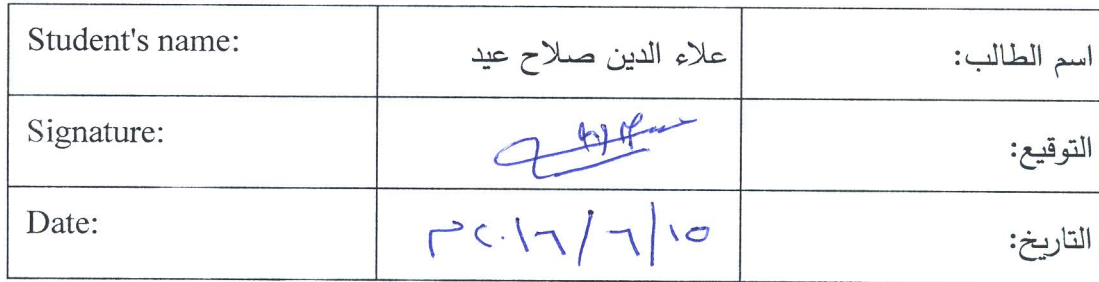 Student's name: علاء الدين صلاح عيد اسم الطالب:
Signature: التوقيع:
Date: ١٥/٦/٢٠١٦م التاريخ: